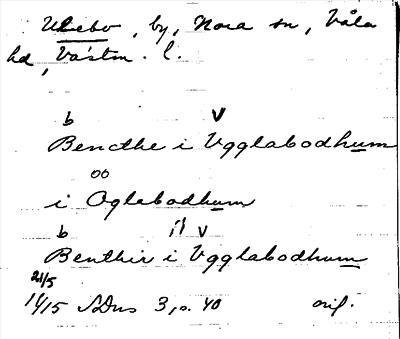 Ulebo, by, Nora sn, Våla
hd, Västm. l.
b V
Bencthe i Vgglabodhum
oo
i Oglabodhum
b V
Benthir i Vgglabodhum
21/5
1415 SDns 3, s. 40 orig.